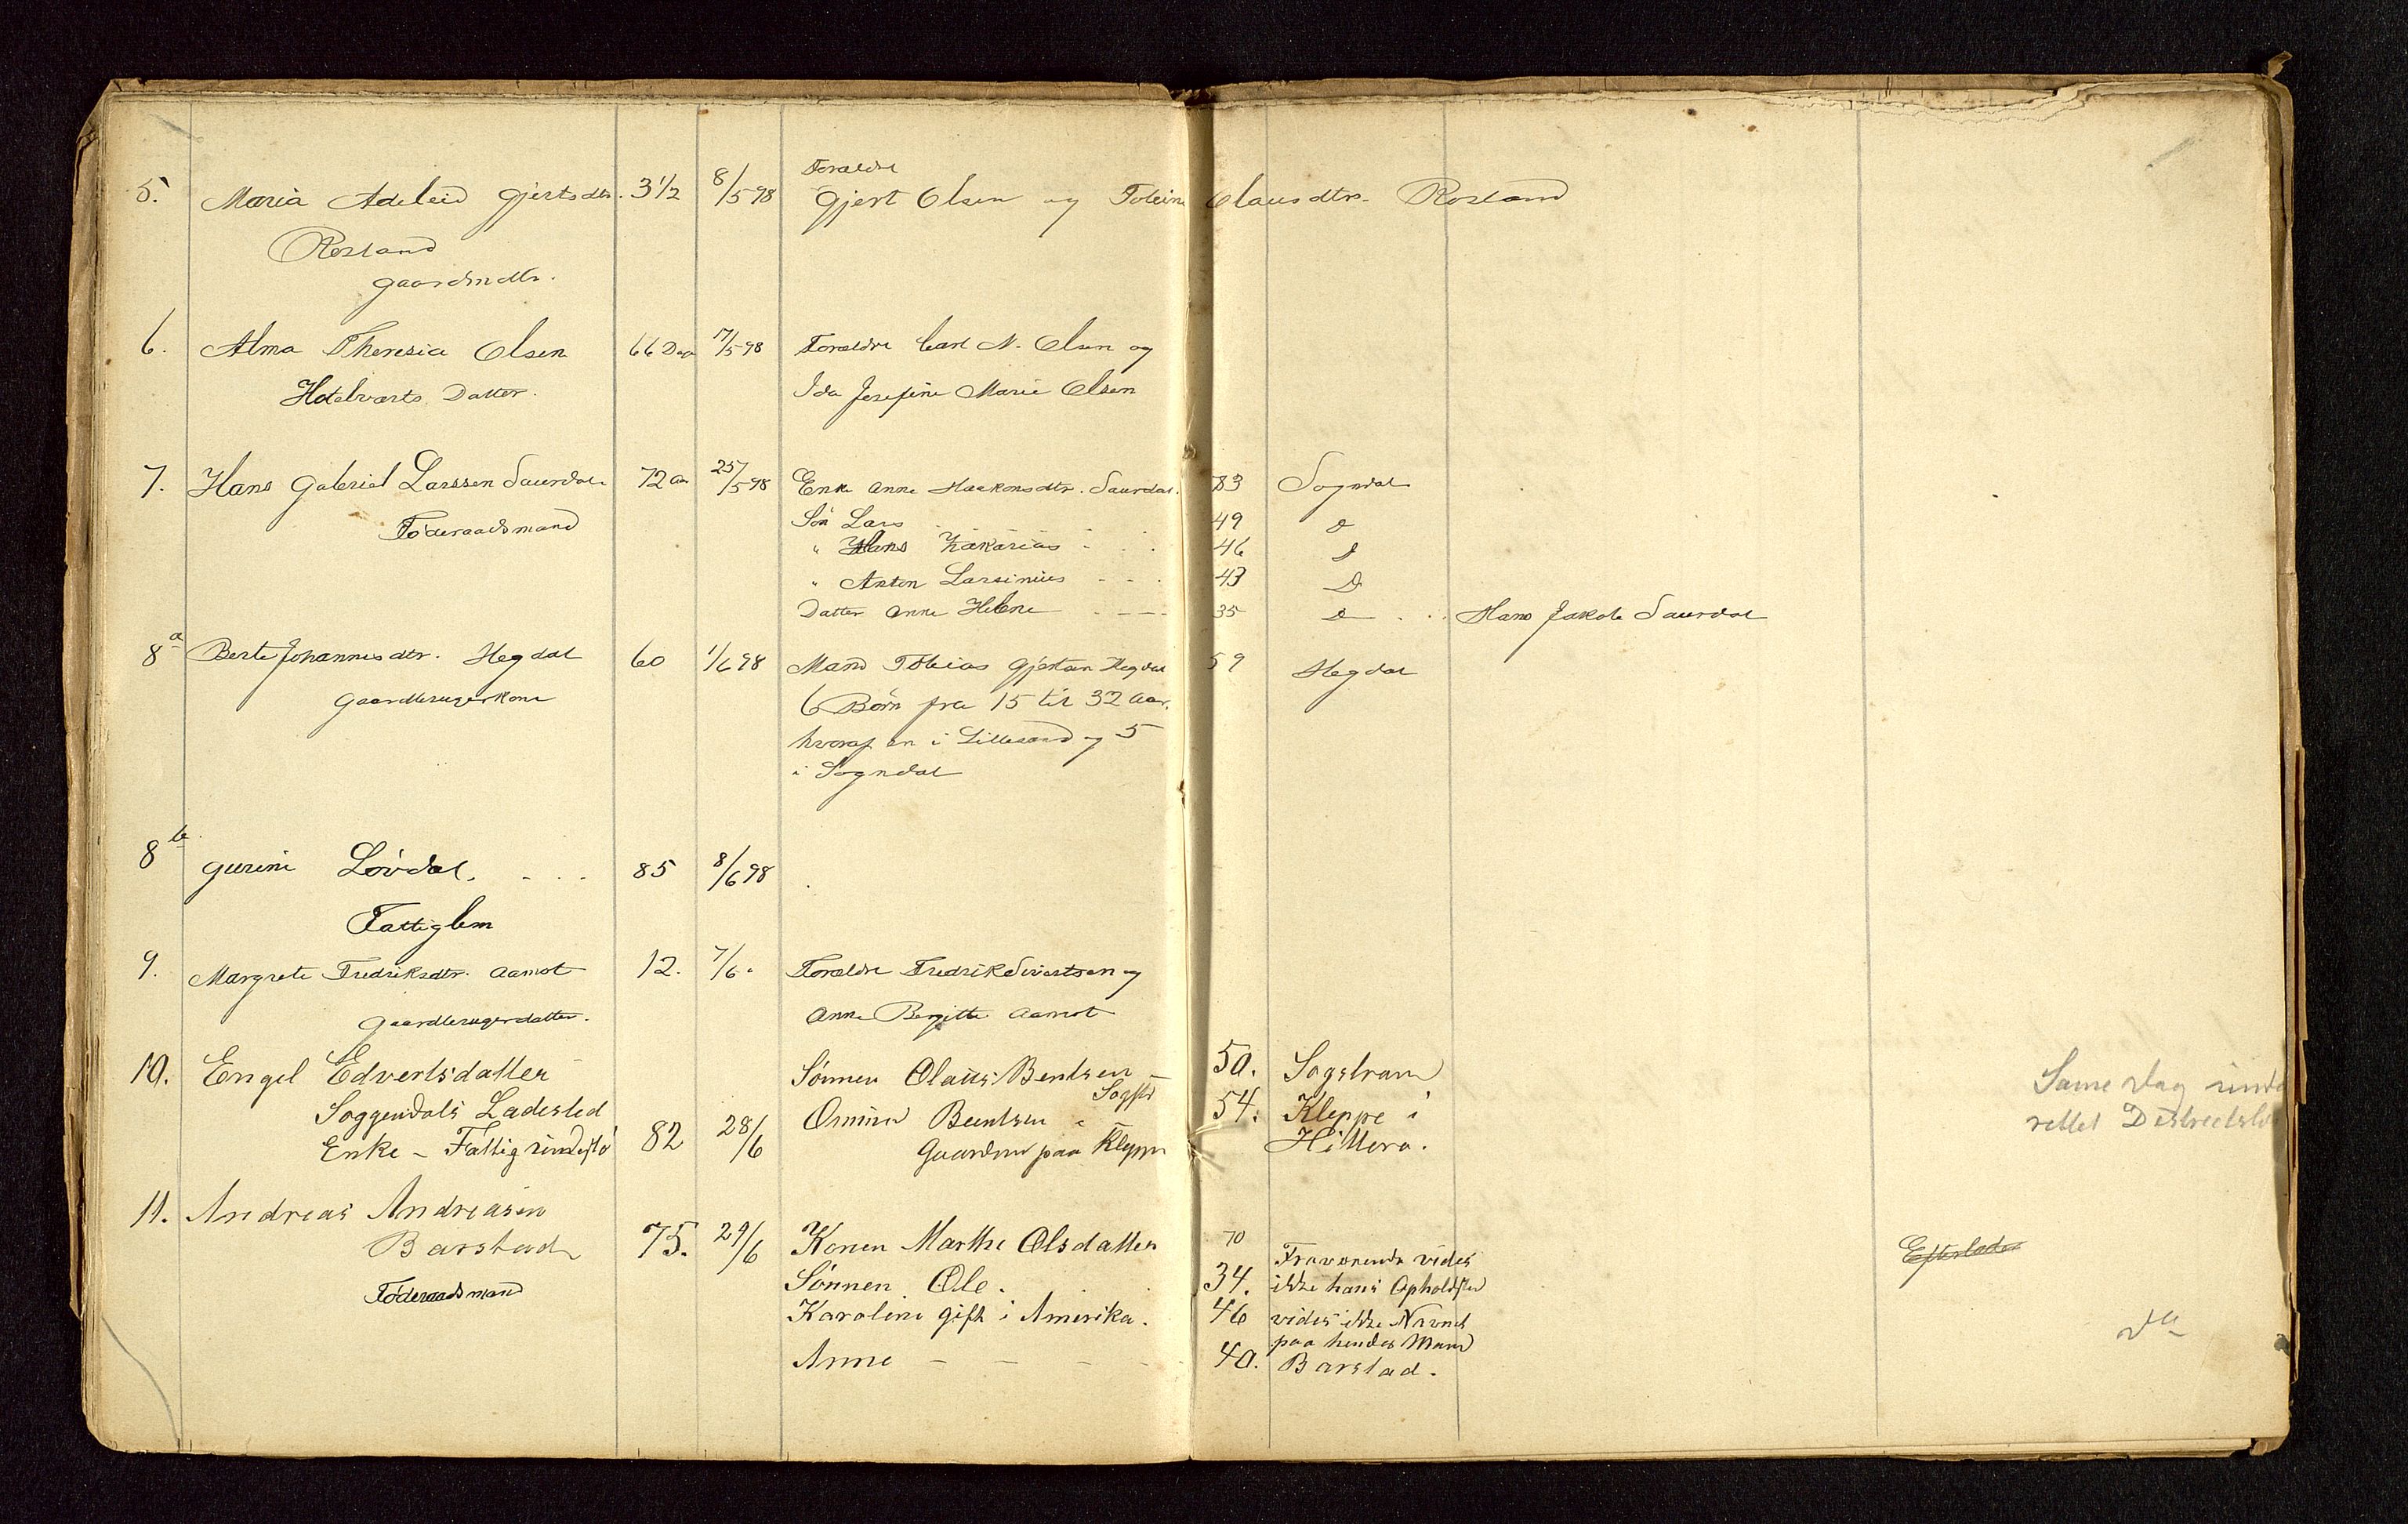 Forældre
5. Maria Adeleid Gjertsdtr. 3 1/2 8/5 98 Gjert Olsen og Tobine Olausdtr. Rosland
Rosland
Gaardmdtr.
6. Alma Theresia Olsen 66 Dage 17/5 98 Forældre Carl N. Olsen og
Hotelværts Datter. Ida Josefine Marie Olsen
7. Hans Gabriel Larssen Saurdal 72 Aar 25/5 98 Enke Anne Haakonsdtr. Saurdal. 73 Sogndal
Föderaadsmand Sön Lars 49 D
" Hans Zakarias 46 D
" Anton Larsinius 43 D
Datter Anne Helene 35 D Hans Jakob Saurdal
8 a Berte Johannesdtr. Hegdal 60 1/6 98 Mand Tobias Gjertsen Hegdal 59 Hegdal
Gaardbrugerkone 6 Børn fra 15 til 32 Aar,
hvoraf en i Lillesand og 5
i Sogndal
8 b Gurine Lövdal. 85 8/6 98
Fattiglem
9. Margrete Fredriksdtr. Aamot 12. 7/6. Forældre Fredrik Sivertsen og
Gaardbrugerdatter. Anne Bergitte Aamot
10. Engel Edvertsdatter Sønnen Olaus Bentsen 50. Sogstrand
Soggendals Ladested Sogstr
Enke – Fattigundestö 82 28/6 Omund Beentsen 54. Kleppe i
Gaardm paa Kleppe Hittero.
Same Dag unde
rettet Distrectsl
11. Andreas Andreasen
Barstad 75. 29/6 Konen Marthe Olsdatter 70
Föderaadsmand Sønnen Ole. 34. Fraværende vides ikke hans Opholdsted
Karoline gift i Amerika. 46 vides ikke Navnet
paa hendes Mand
Anne – – – – 40. Barstad.
Efterlader
da